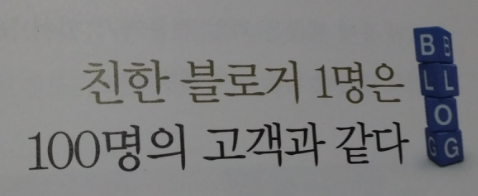 친한 블로거 1명은
100명의 고객과 같다
B B
L L
O
G G